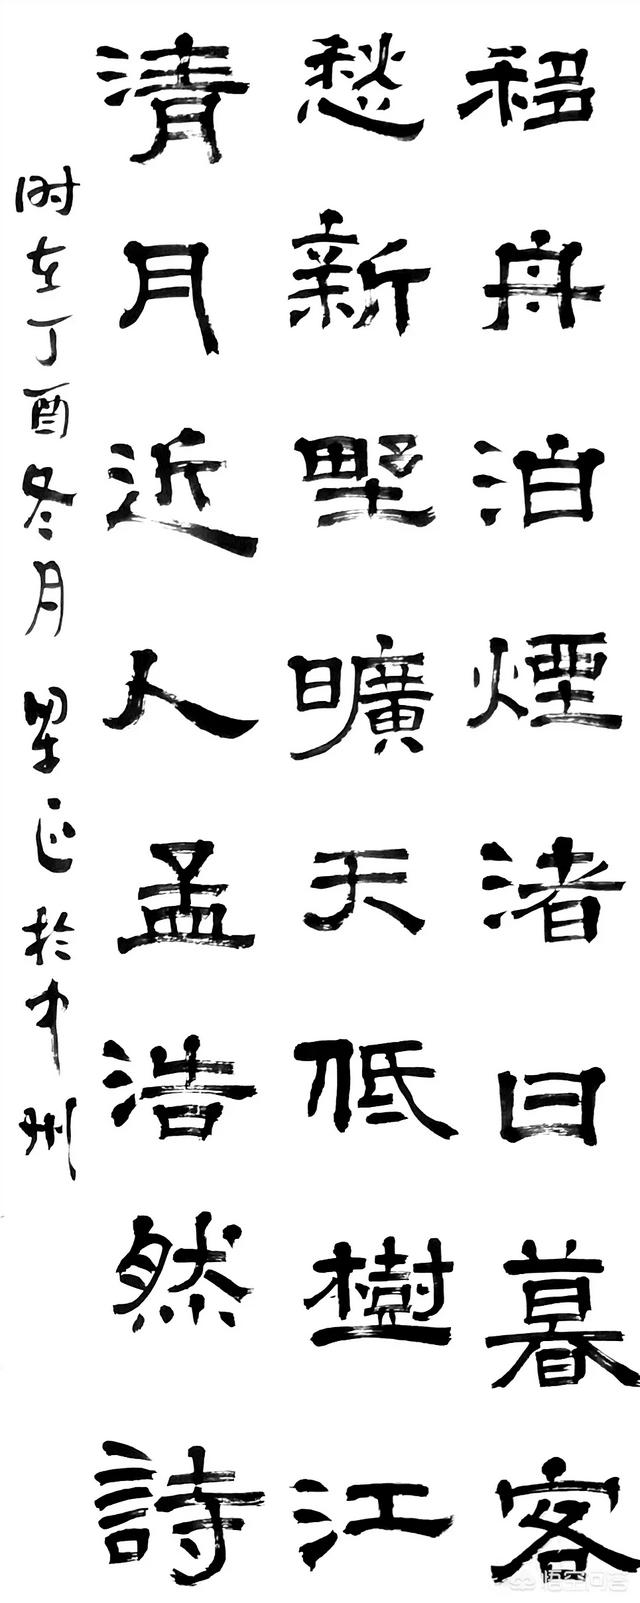 移舟泊煙渚日暮客
愁新野曠天低樹江
清月近人孟浩然詩
时在丁酉冬月正於中州
悟空问答